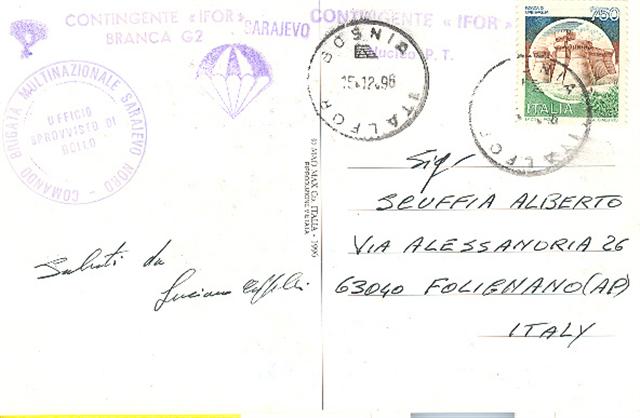 CONTINGENTE «IFOR»
BRANCA G2
SARAJEVO
CONTINGENTE «IFOR»
Nucleo P. T.
COMANDO BRIGATA MULTINAZIONALE SARAJEVO NORD -
UFFICIO
SPROVVISTO DI
BOLLO
ITALFOR BOSNIA
15.12.96
750
ITALIA
ITALFOR
© MAD MAX Co. ITALIA - 1996
RIPRODUZIONE VIETATA
Saluti da
Luciano
Sig.
SCUFFIA ALBERTO
VIA ALESSANDRIA 26
63040 FOLIGNANO (AP)
ITALY